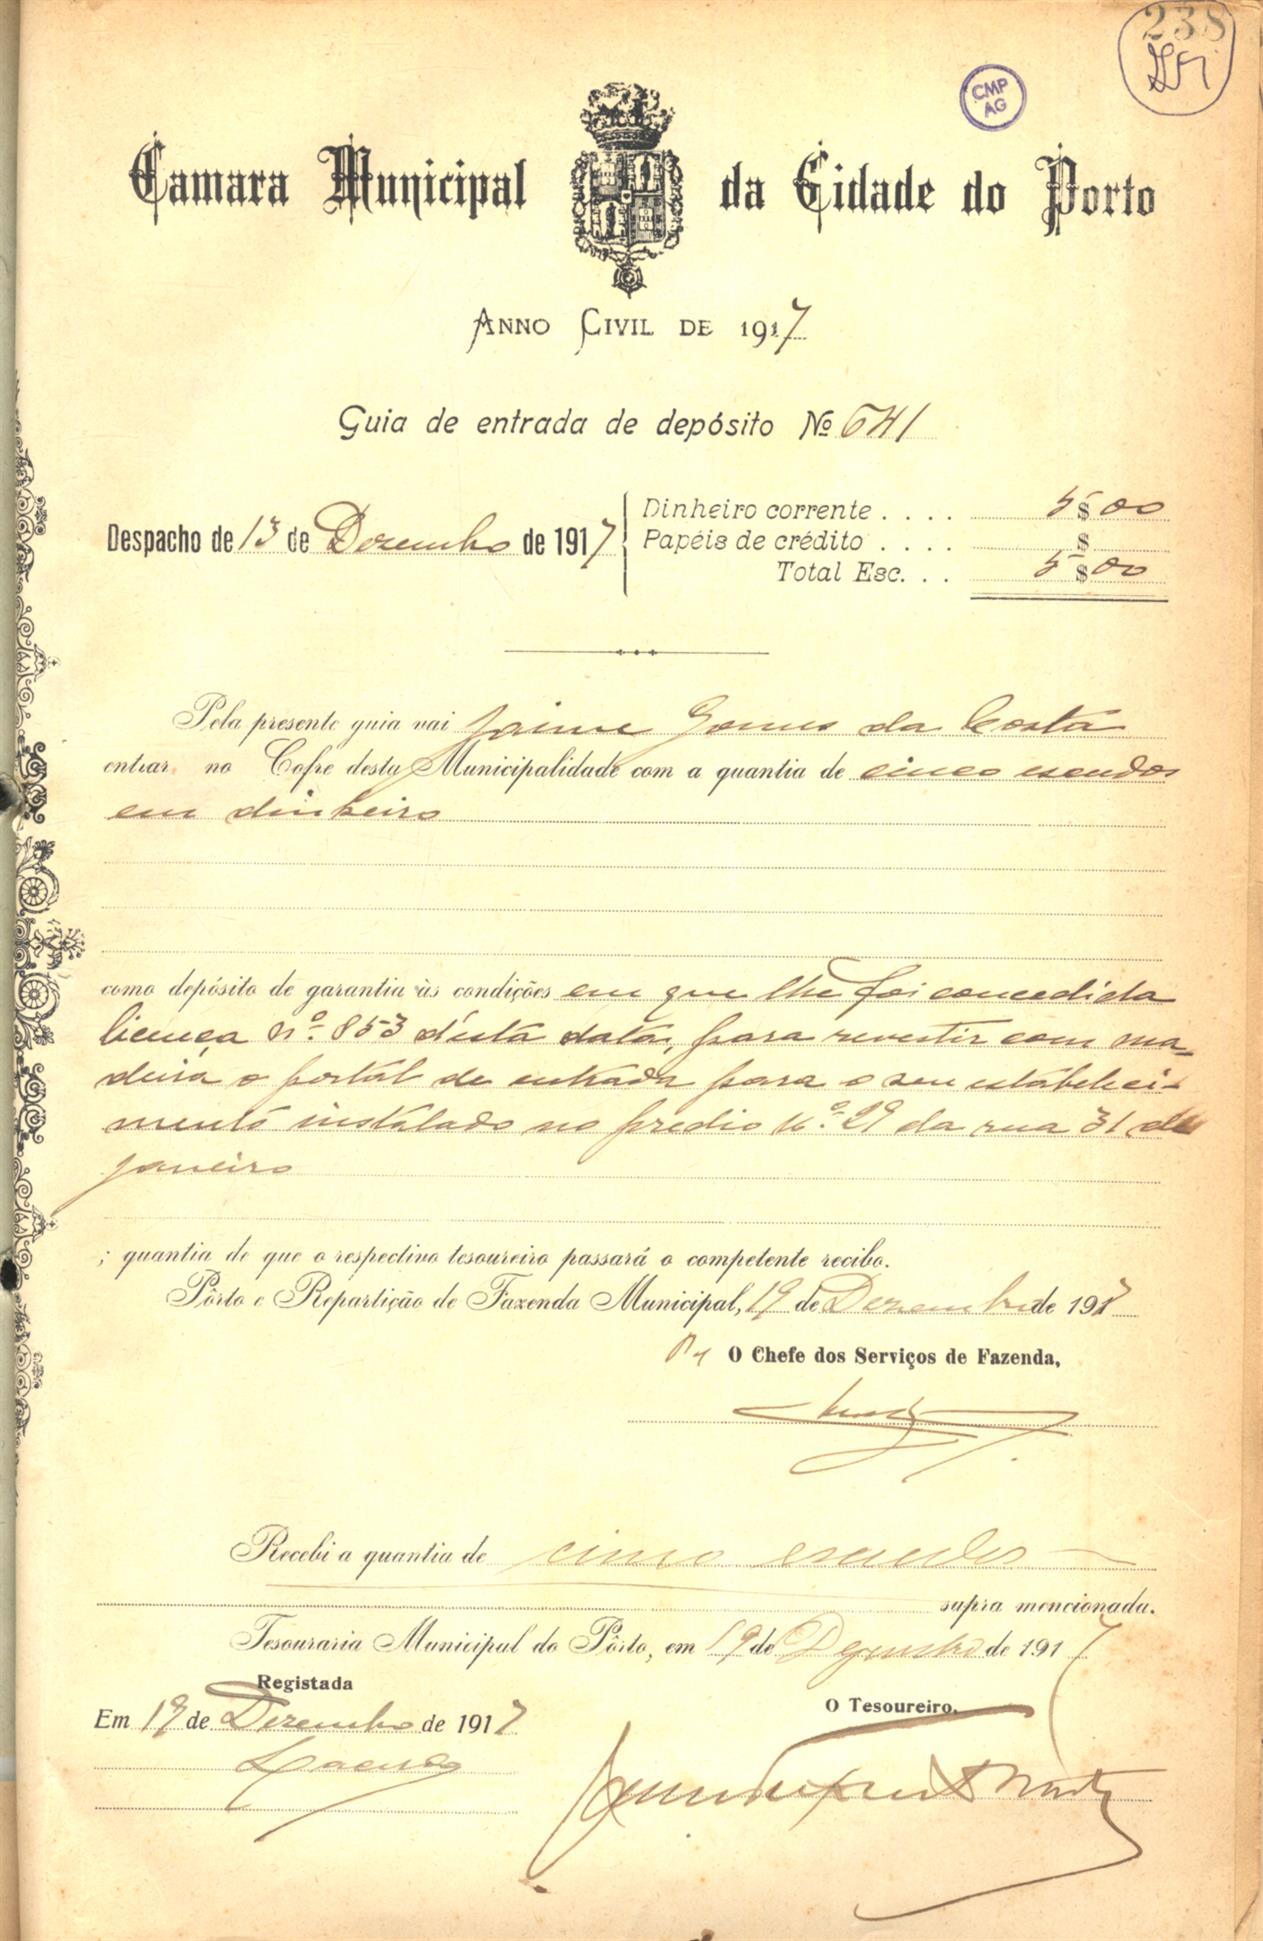 238
CMP
AG
Camara Municipal da Cidade do Porto
Anno Civil de 1917
Guia de entrada de depósito Nº 641
Despacho de 13 de Dezembro de 1917
Dinheiro corrente . . . . 5$00
Papéis de crédito . . . . $
Total Esc. . . 5$00
Pela presente guia vai Jaime Gomes da Costa
entrar no Cofre desta Municipalidade com a quantia de cinco escudos
em dinheiro
como depósito de garantia às condições em que lhe foi concedida
licença nº 853 d'esta data, para revestir com ma-
deira o portal de entrada para o seu estabeleci-
mento instalado no predio nº 29 da rua 31 de
Janeiro
; quantia de que o respectivo tesoureiro passará o competente recibo.
Pôrto e Repartição de Fazenda Municipal, 19 de Dezembro de 1917
O Chefe dos Serviços de Fazenda,
Recebi a quantia de cinco escudos
supra mencionada.
Tesouraria Municipal do Pôrto, em 19 de Dezembro de 1917
Registada
Em 19 de Dezembro de 1917
O Tesoureiro,